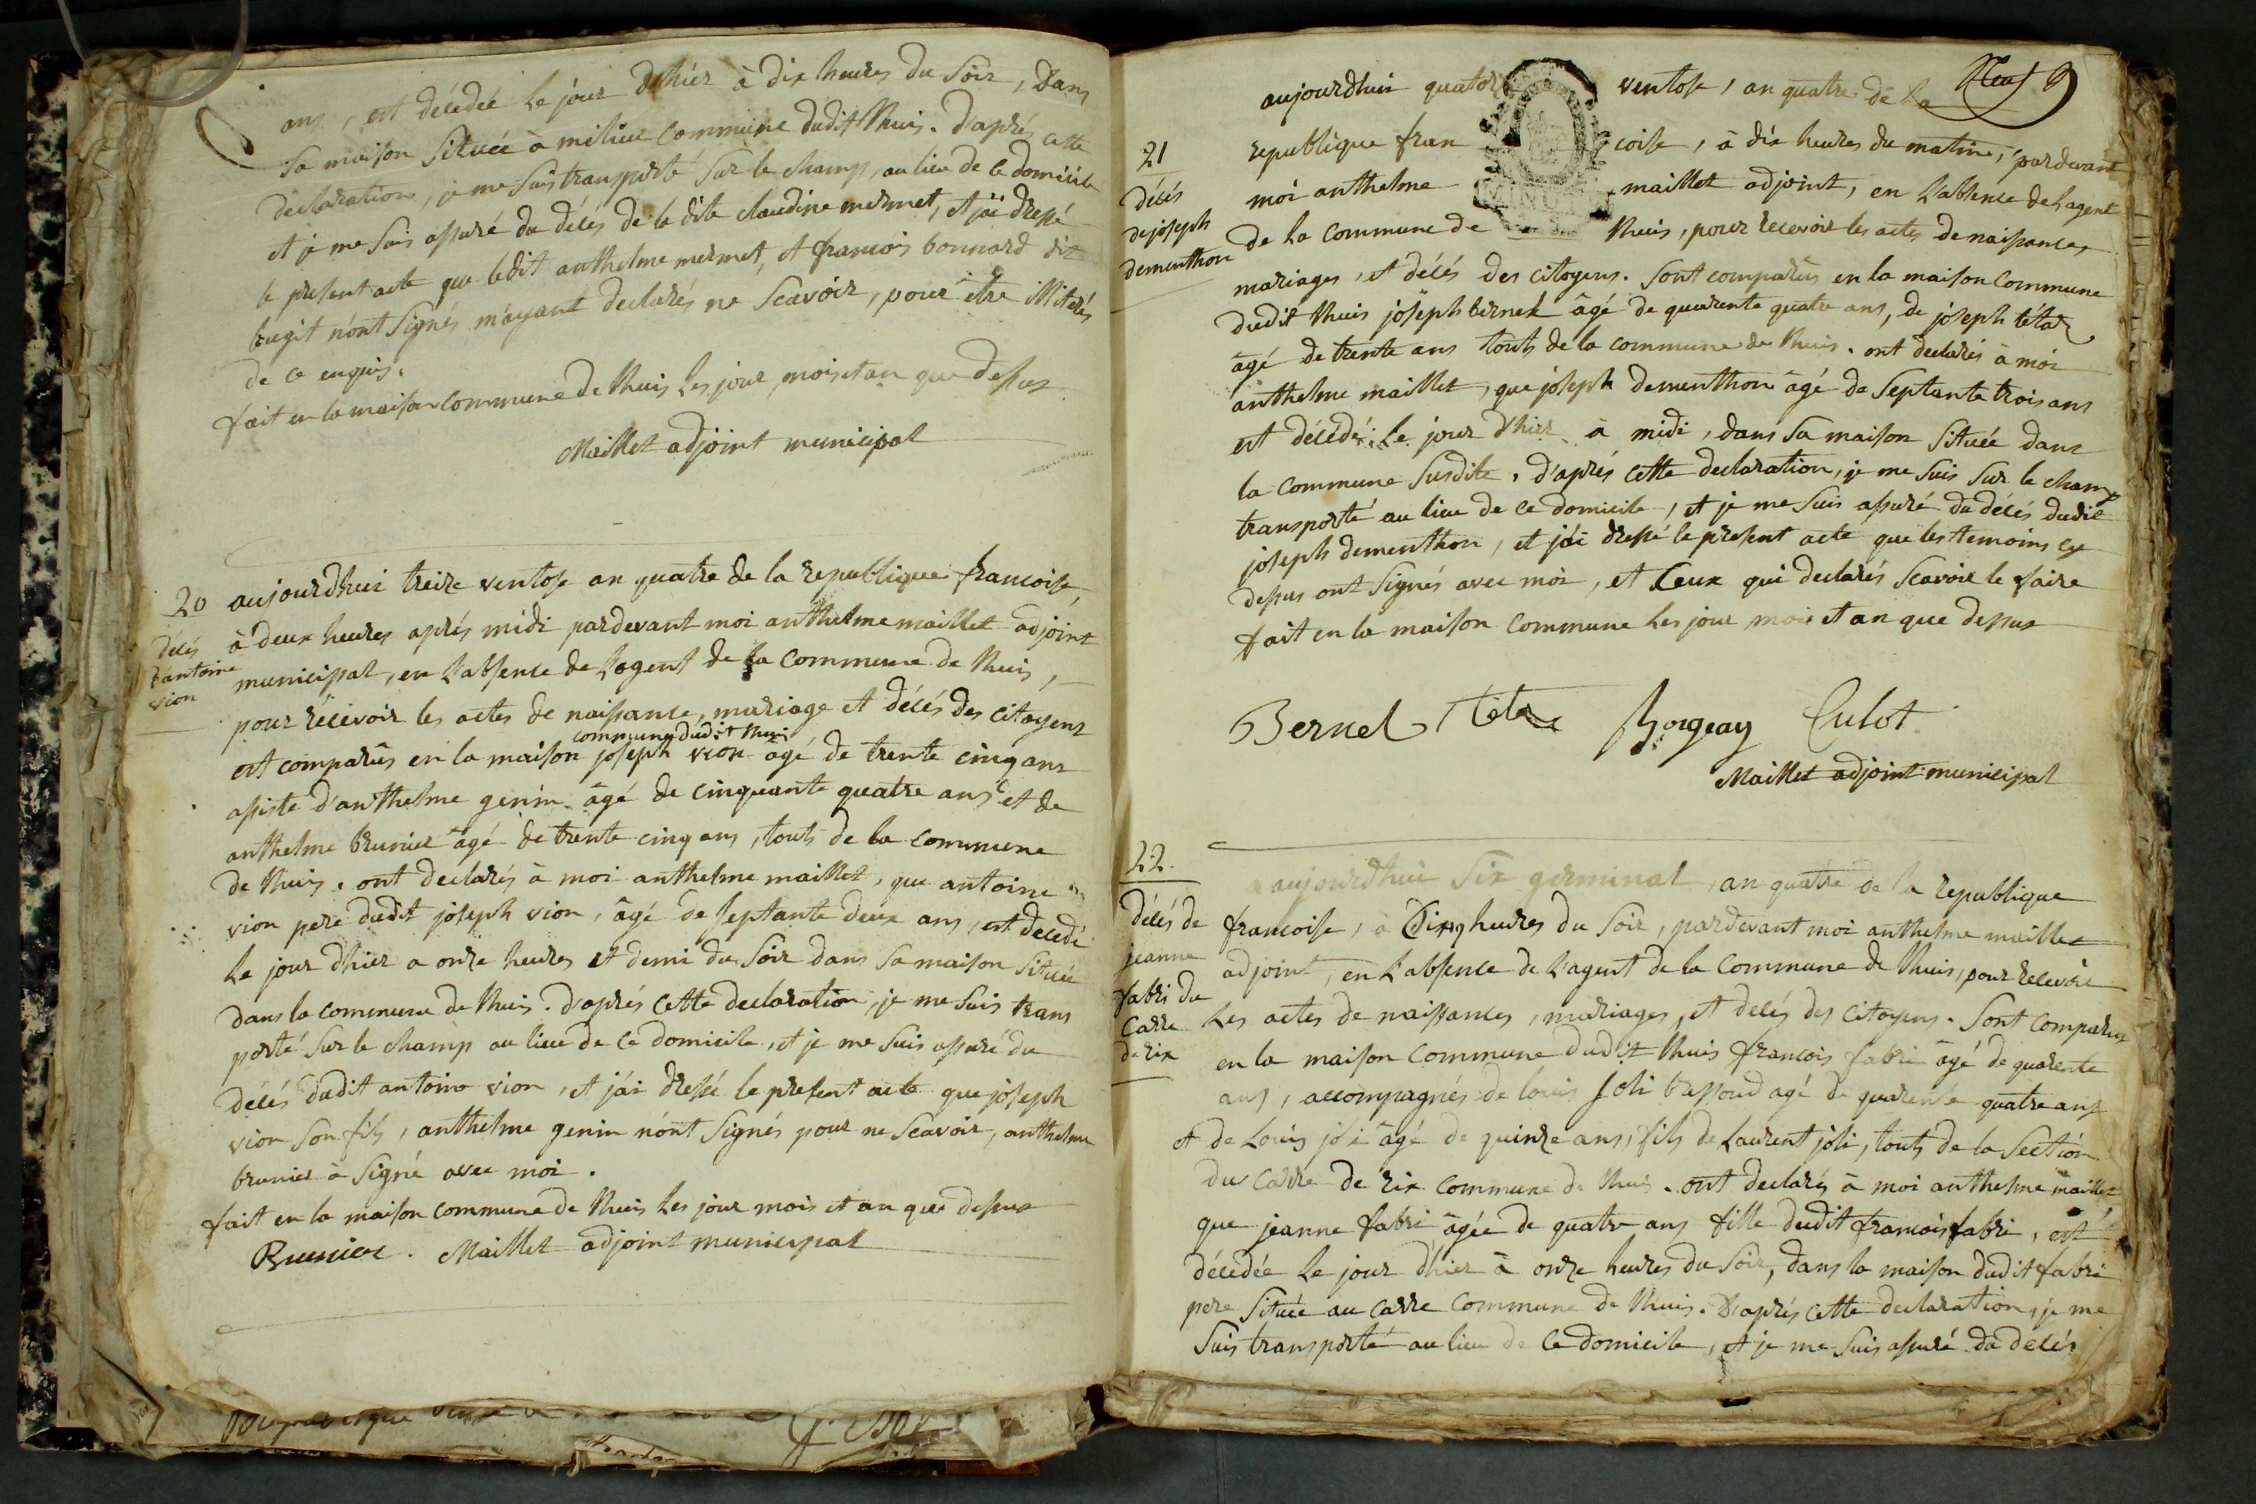 ans, est décédée le jour d'hier à dix heures du soir, dans
sa maison située à milieu commune dudit Vhuis. d'aprés cette
declaration, je me suis transporté sur le champ, au lieu de ce domicile
et je me suis assuré du décés de la dite claudine mermet, et j'ai dressé
le present acte que ledit anthelme mermet, et francois bonnard dit
n'ont signés m'ayant declarés ne scavoir, pour être illiterés
de ce enquis.
fait en la maison commune de Vhuis les jour, mois et an que dessus
Maillet adjoint municipal
20
décés
d'antoine
vion
aujourdhui treize ventose an quatre de la republique francoise,
à deux heures aprés midi pardevant moi anthelme maillet adjoint
municipal, en l'absence de l'agent de la commune de Vhuis,
pour récevoir les actes de naissance, mariage et décés des citoyens
commune dudit Vhuis
est comparûs en la maison joseph vion âgé de trente cinq ans
assisté d'anthelme genin âgé de cinquante quatre ans et de
anthelme brunier âgé de trente cinq ans, touts de la commune
de Vhuis. ont declarés à moi anthelme maillet, que antoine
vion pere dudit joseph vion, âgé de septante deux ans, est decedé
le jour d'hier a onze heures et demi du soir dans sa maison située
dans la commune de Vhuis. d'aprés cette declaration, je me suis trans
porté sur le champ au lieu de ce domicile, et je me suis assuré du
décés dudit antoine vion, et j'ai dressé le present acte que joseph
vion son fils, anthelme genin n'ont signés pour ne scavoir, anthelme
brunier à signé avec moi.
fait en la maison commune de Vhuis les jour mois et an que dessus
Brunier. Maillet adjoint municipal
neuf 9
21
décés
de joseph
dementhon
aujourdhui quatorze ventose, an quatre de la
republique francoise, à dix heures du matin, pardevant
moi anthelme maillet adjoint, en l'absence de l'agent
de la commune de Vhuis, pour recevoir les actes de naissances,
mariages, et décés des citoyens. sont comparûs en la maison commune
dudit Vhuis joseph bernel âgé de quarente quatre ans, de joseph tétaz
âgé de trente ans touts de la commune de Vhuis. ont declarés à moi
anthelme maillet, que joseph dementhon âgé de septante trois ans
est décédé le jour d'hier à midi, dans sa maison située dans
la commune susdite. d'aprés cette declaration, je me suis sur le champ
transporté au lieu de ce domicile, et je me suis assuré du décés dudit
joseph dementhon, et j'ai dressé le present acte que les temoins cy
dessus ont signés avec moi, et ceux qui declarés scavoir le faire
fait en la maison commune les jour mois et an que dessus
Bernel Tétaz Borgeay Culot
Maillet adjoint municipal
22
décés de
jeanne
fabri du
Carre
de rix
aujourdhui six germinal, an quatre de la republique
francoise, à heures du soir, pardevant moi anthelme maillet
adjoint, en l'absence de l'agent de la commune de Vhuis, pour recevoir
les actes de naissances, mariages, et decés des citoyens. sont comparus
en la maison commune dudit Vhuis francois fabri âgé de quarente
ans, accompagnés de louis joli agé de quarente quatre ans
et de Louis joli âgé de quinze ans, fils de Laurent joli, touts de la section
du carre de rix commune de Vhuis. ont declarés à moi anthelme maillet
que jeanne fabri âgée de quatre ans fille dudit francois fabri, est
décedée le jour d'hier à onze heures du soir, dans la maison dudit fabri
pere située au carre commune de Vhuis. D'aprés cette declaration, je me
suis transporté au lieu de ce domicile, et je me suis assuré du decés